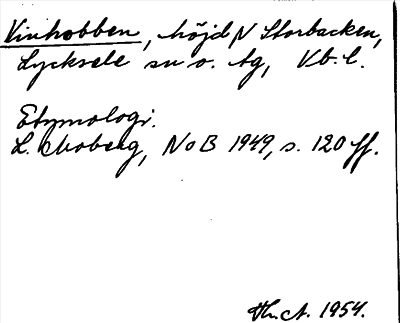 Vinhobben, höjd N Storbacken,
Lycksele sn o. tg, Vb. l.
Etymologi.
L. Moberg, NoB 1949, s. 120 ff.
1954.